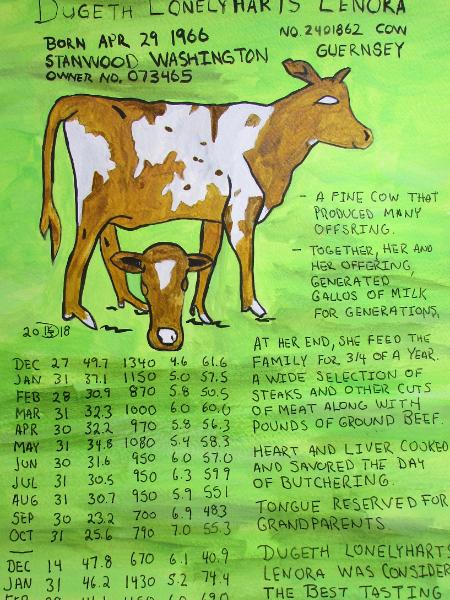 DUGETH LONELYHARTS LENORA
BORN APR 29 1966
STANWOOD WASHINGTON
OWNER NO. 073465
NO. 2401862 COW
GUERNSEY
- A FINE COW THAT
PRODUCED MANY
OFFSRING.
- TOGETHER, HER AND
HER OFFERING,
GENERATED
GALLOS OF MILK
FOR GENERATIONS,
20 18
DEC 27 49.7 1340 4.6 61.6
JAN 31 37.1 1150 5.0 57.5
FEB 28 30.9 870 5.8 50.5
MAR 31 32.3 1000 6.0 60.0
APR 30 32.2 970 5.8 56.3
MAY 31 34.8 1080 5.4 58.3
JUN 30 31.6 950 6.0 57.0
JUL 31 30.5 950 6.3 599
AUG 31 30.7 950 5.9 551
SEP 30 23.2 700 6.9 483
OCT 31 25.6 790 7.0 55.3
DEC 14 47.8 670 6.1 40.9
JAN 31 46.2 1430 5.2 74.4
AT HER END, SHE FEED THE
FAMILY FOR 3/4 OF A YEAR.
A WIDE SELECTION OF
STEAKS AND OTHER CUTS
OF MEAT ALONG WITH
POUNDS OF GROUND BEEF.
HEART AND LIVER COOKED
AND SAVORED THE DAY
OF BUTCHERING.
TONGUE RESERVED FOR
GRANDPARENTS
DUGETH LONELYHARTS
LENORA WAS CONSIDER
THE BEST TASTING